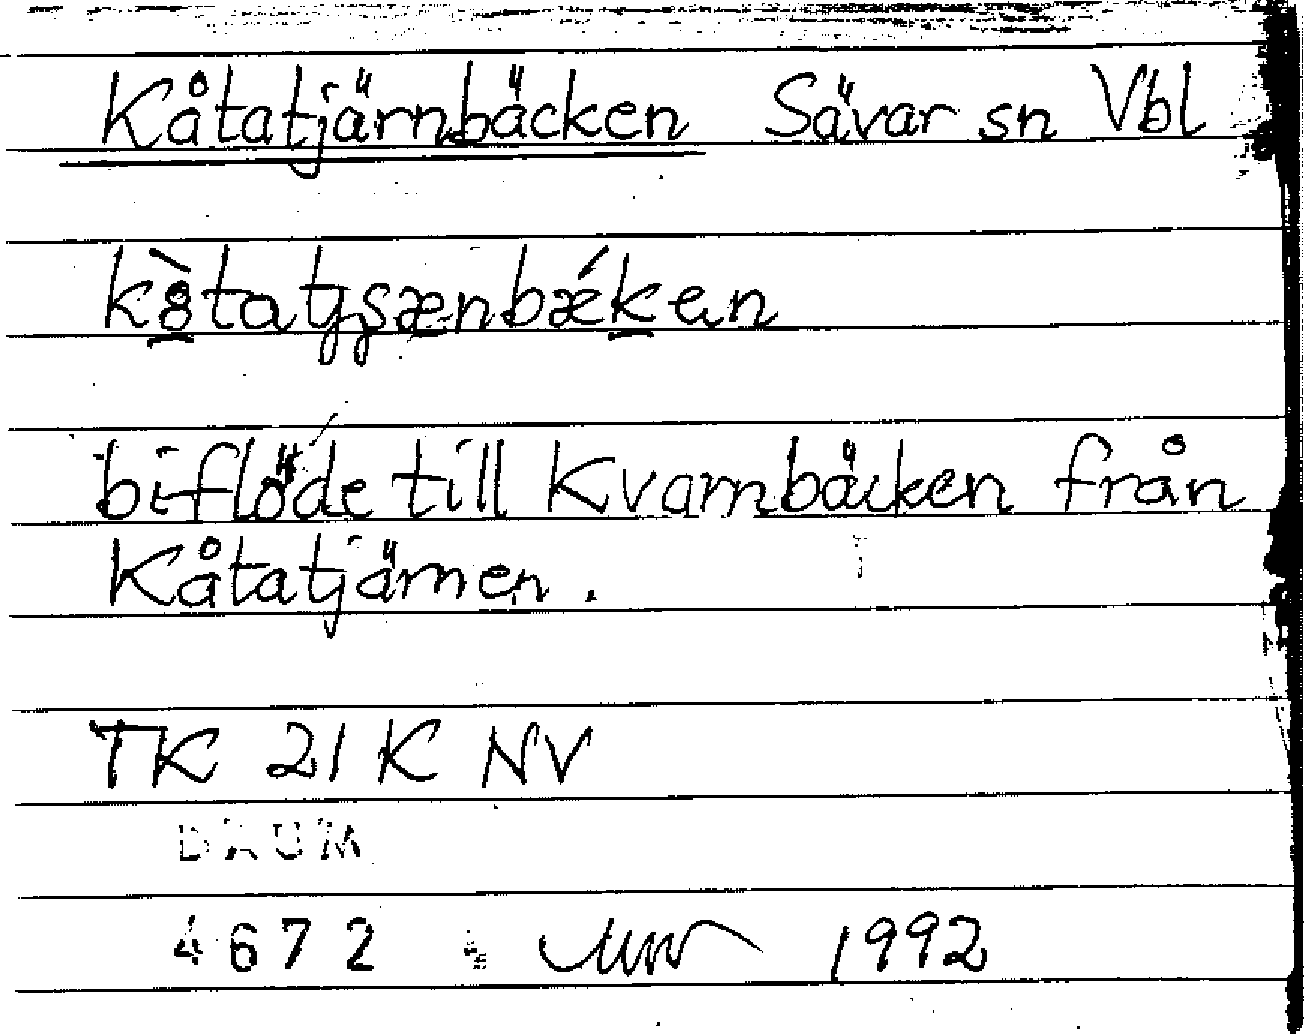 Kåtatjärnbäcken Sävar sn Vbl
biflöde till Kvarnbäcken från
Kåtatjärnen.
TK 21 K NV
DAUM
4672 1992